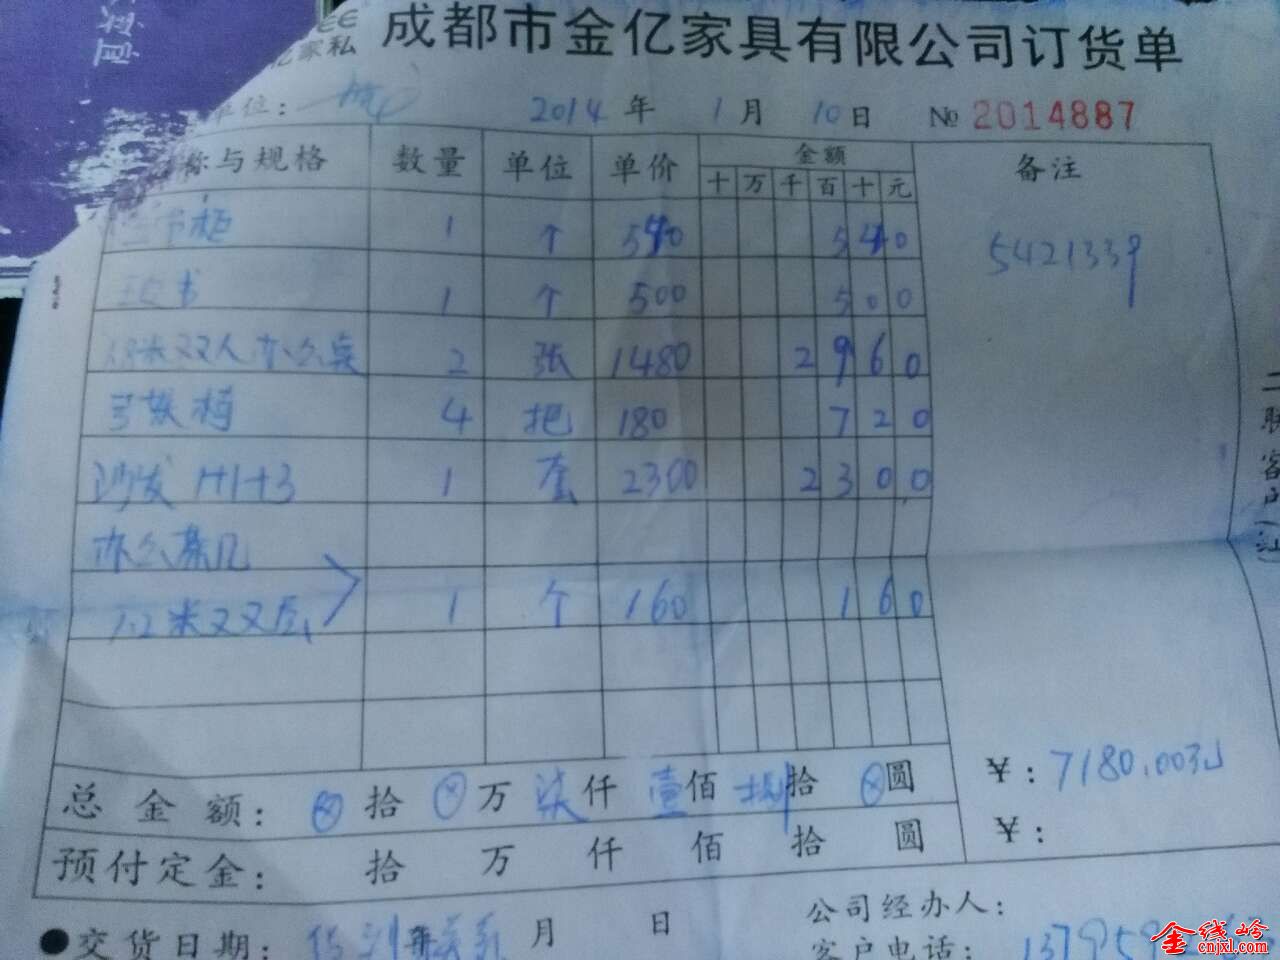 亿家私 成都市金亿家具有限公司订货单
单位： 2014年 1月 10日 № 2014887
称与规格 数量 单位 单价 金额 备注
十 万 千 百 十 元
柜 1 个 540 540 5421339
书 1 个 500 500
米双人办公桌 2 张 1480 2960
弓椅 4 把 180 720
沙发 1+1+3 1 套 2300 2300
办公茶几
1.2米 1 个 160 160
总金额： ⊗拾 ⊗万 柒仟 壹佰 捌拾 ⊗圆 ￥：7180.00元
预付定金： 拾 万 仟 佰 拾 圆 ￥：
●交货日期： 月 日 公司经办人：
客户电话：
二联客户(红)
金线岭
cnjxl.com